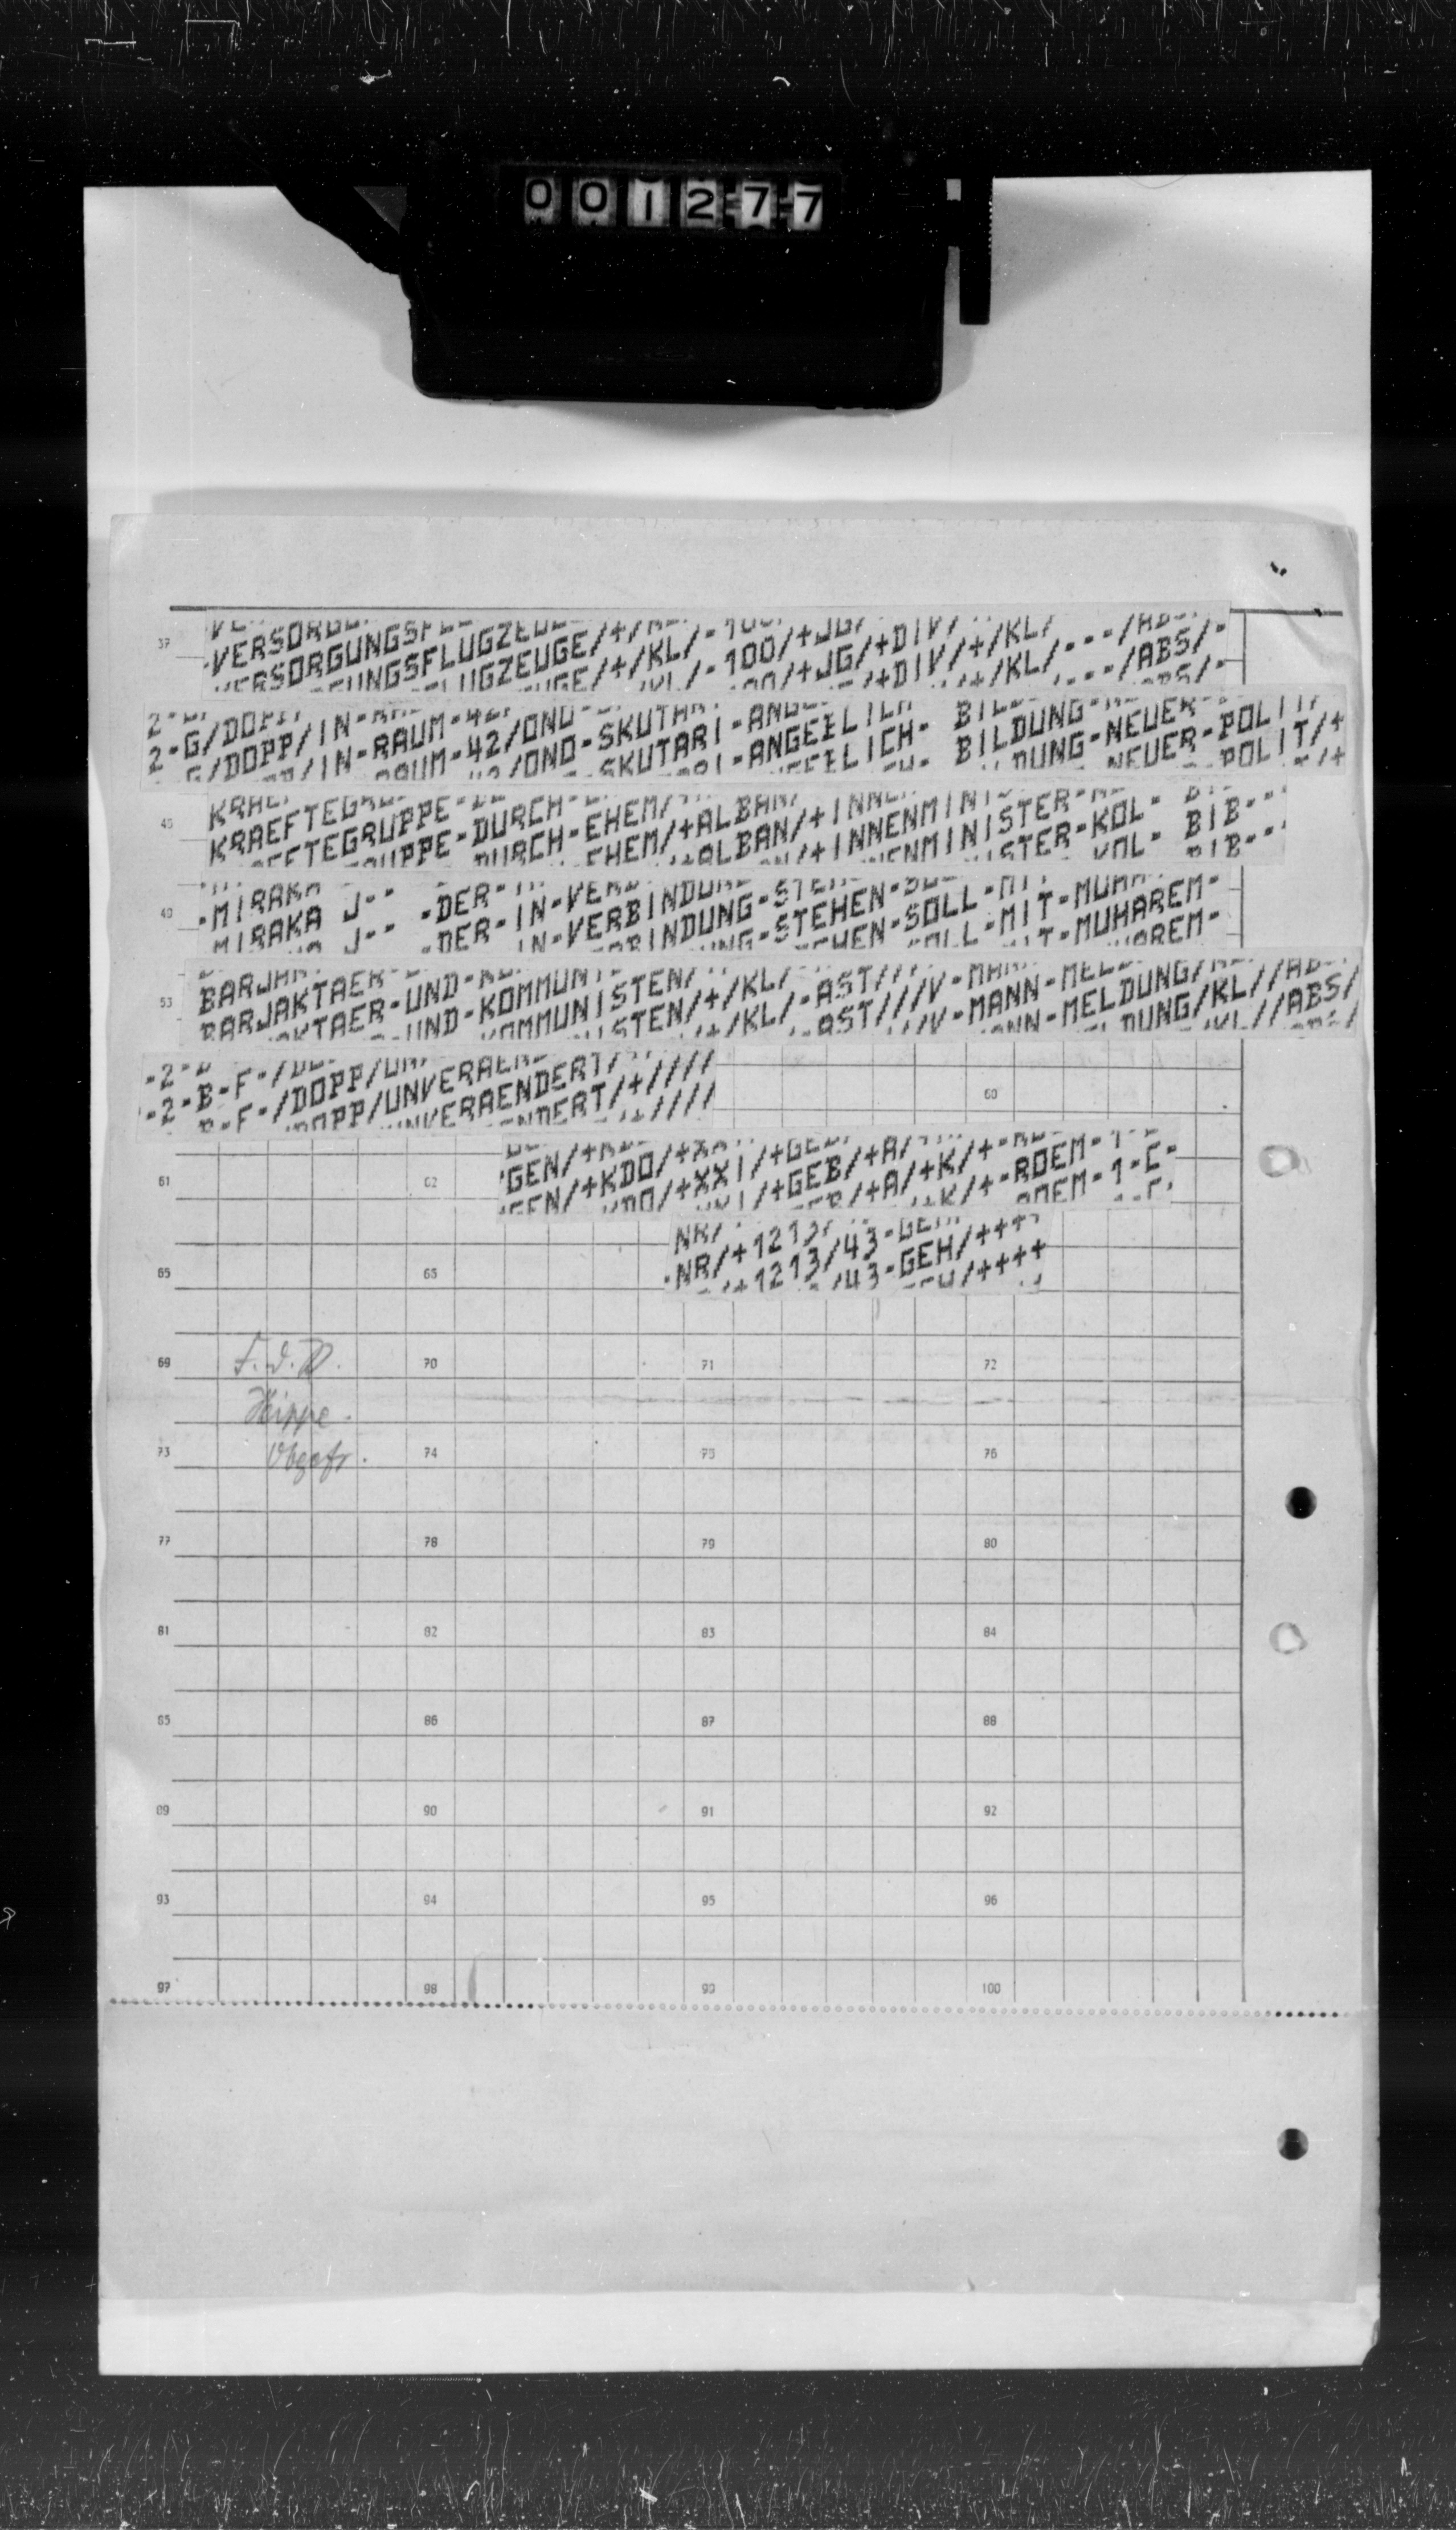 001277
37
-VERSORGUNGSFLUGZEUGE/+/KL/-100/+JG/+DIV/+/KL/---/ABS/-
2-G/DOPP/IN-RAUM-42/ONO-SKUTARI-ANGEELICH- BILDUNG-NEUER-POLIT/+
45 KRAEFTEGRUPPE-DURCH-EHEM/+ALBAN/+INNENMINISTER-KOL- BIB--
49 -MIRAKA J-- -DER-IN-VERBINDUNG-STEHEN-SOLL-MIT-MUHAREM-
53 BARJAKTAER-UND-KOMMUNISTEN/+/KL/-AST///V-MANN-MELDUNG/KL//ABS/
-2-B-F-/DOPP/UNVERAENDERT/+////
60
61 62 GEN/+KDO/+XXI/+GEB/+A/+K/+-ROEM-1-C-
-NR/+1213/43-GEH/++++
65 66
69 F.d.R. 70 71 72
Hippe.
73 Obgefr. 74 75 76
77 78 79 80
81 82 83 84
85 86 87 88
89 90 91 92
93 94 95 96
97 98 99 100